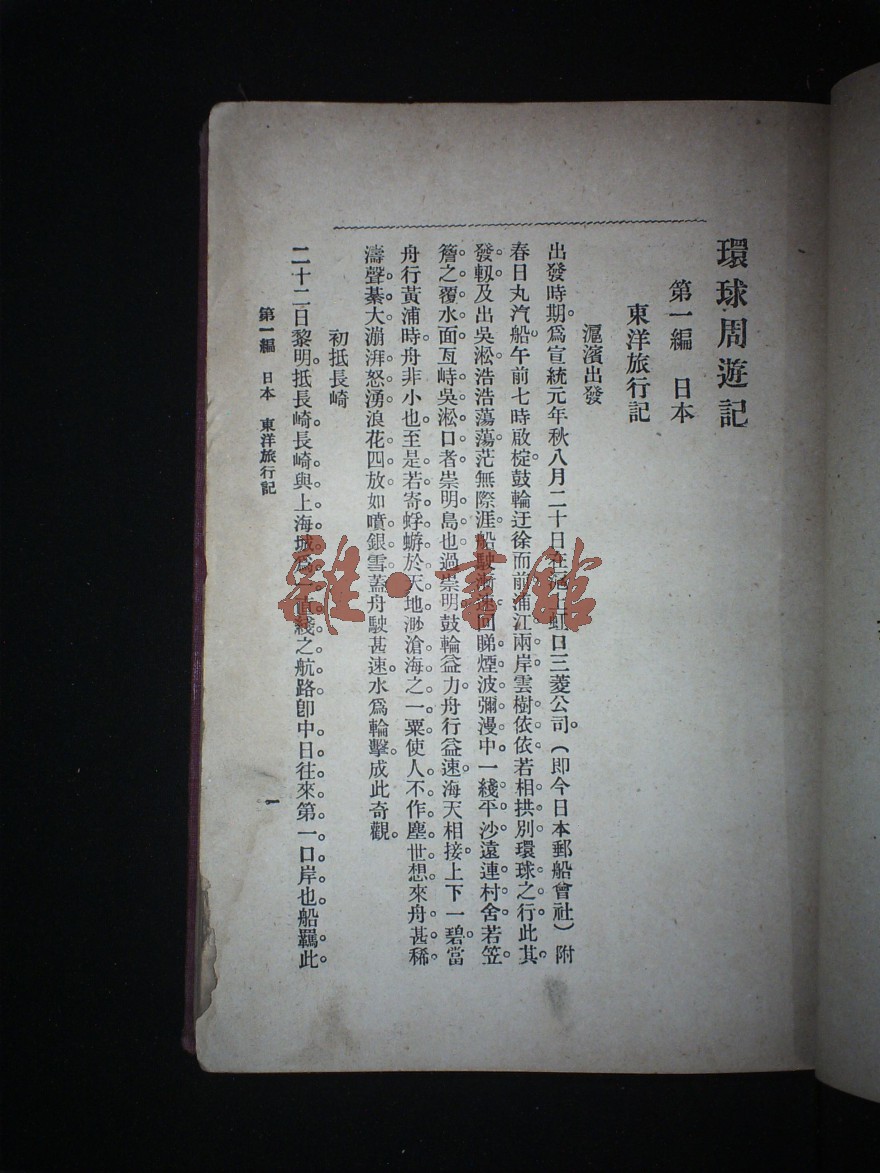 環球周遊記
第一編　日本
東洋旅行記
滬濱出發
出發時期。爲宣統元年秋八月二十日在滬上虹口三菱公司。(即今日本郵船會社)附
春日丸汽船。午前七時啟椗。鼓輪迂徐而前。浦江兩岸。雲樹依依。若相拱別。環球之行。此其。
發軔。及出吳淞。浩浩蕩蕩。茫無際涯。船駛漸速。回睇煙波彌漫中。一綫平沙。遠連村舍。若笠。
簷之覆水面。亙峙吳淞口者。崇明島也。過崇明。鼓輪益力。舟行益速。海天相接。上下一碧。當
舟行黃浦時。舟非小也。至是若寄蜉蝣於天地。渺滄海之一粟。使人不作塵世想。來舟甚稀。
濤聲綦大。漰湃怒湧。浪花四放。如噴銀雪。蓋舟駛甚速。水爲輪擊。成此奇觀。
初抵長崎
二十二日黎明。抵長崎。長崎與上海城爲一直綫之航路。卽中日往來第一口岸也。船羈此。
第一編　日本　東洋旅行記
一
雜·書館